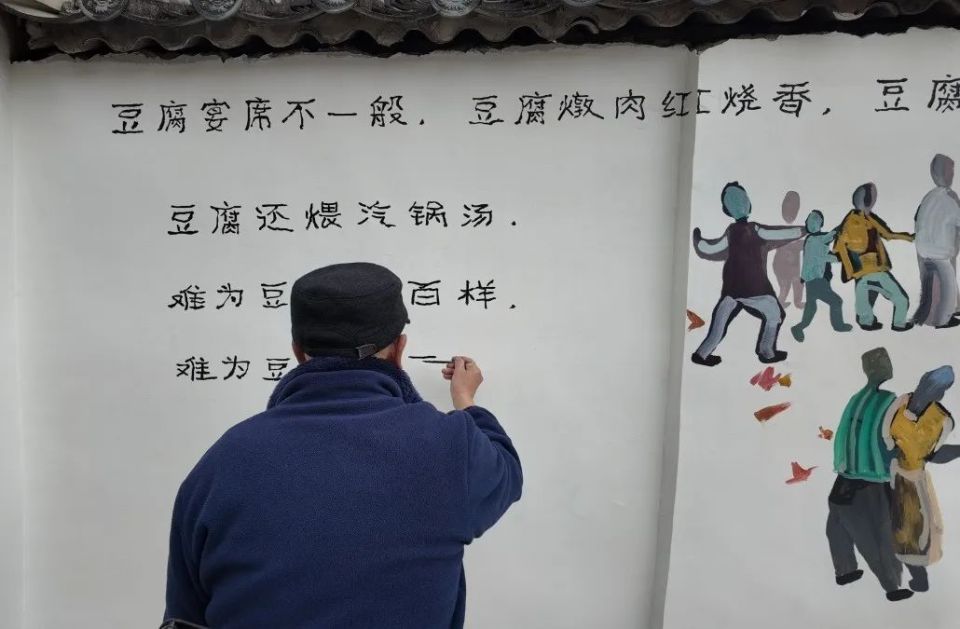 豆腐宴席不一般. 豆腐燉肉红烧香, 豆腐
豆腐还煨汽锅汤.
难为豆 百样.
难为豆